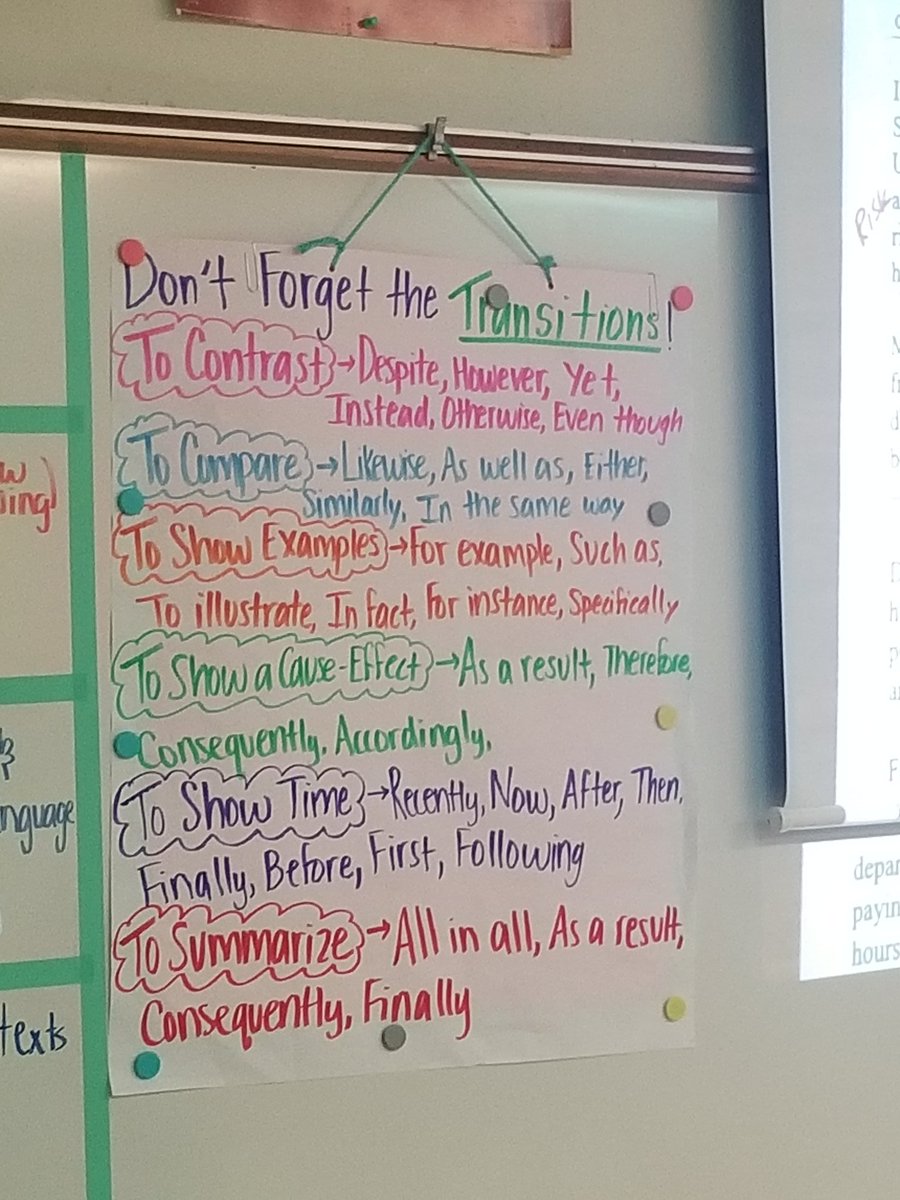 Don't Forget the Transitions!
To Contrast → Despite, However, Yet,
Instead, Otherwise, Even though
To Compare → Likewise, As well as, Either,
Similarly, In the same way
To Show Examples → For example, Such as,
To illustrate, In fact, For instance, Specifically
To Show a Cause-Effect → As a result, Therefore,
Consequently, Accordingly,
To Show Time → Recently, Now, After, Then,
Finally, Before, First, Following
To Summarize → All in all, As a result,
Consequently, Finally
texts
Risk
hours